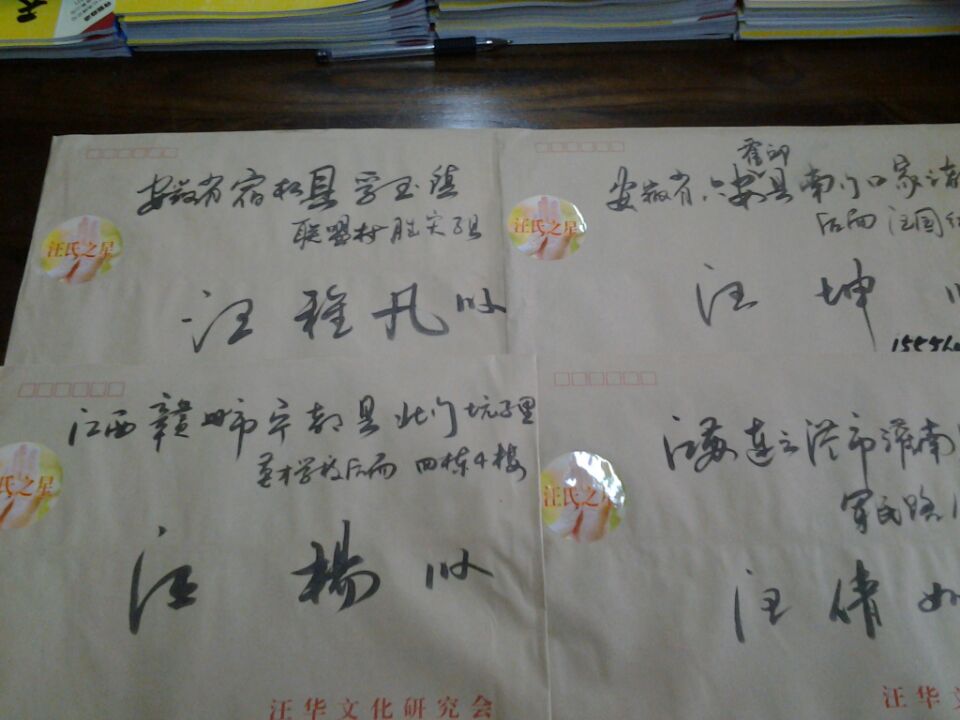 安徽省宿松县孚玉镇
联盟村胜实组
汪氏之星
汪程凡收
霍邱
安徽省六安县南门口
后面 汪国
汪氏之星
汪坤收
江西赣州市宁都县北门坑子里
英才学校后面 四栋4楼
汪氏之星
汪杨收
汪华文化研究会
江苏连云港市灌南
军民路
汪氏之星
汪倩如
汪华文